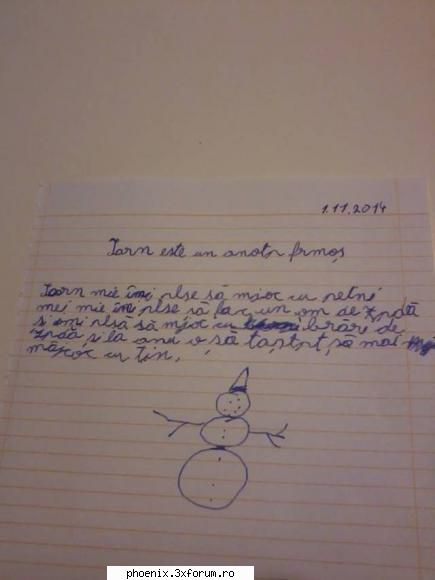 1.11.2014
Iarn este un anotr frmoș
Iarn mie îmi plse să mjoc cu petni
mei mie îmi plse să fac un om de zpdă
și omi plsă să mjoc cu brări de
zpdă și la anu o să taștpt să mai
măjcoc cu tin.
phoenix.3xforum.ro